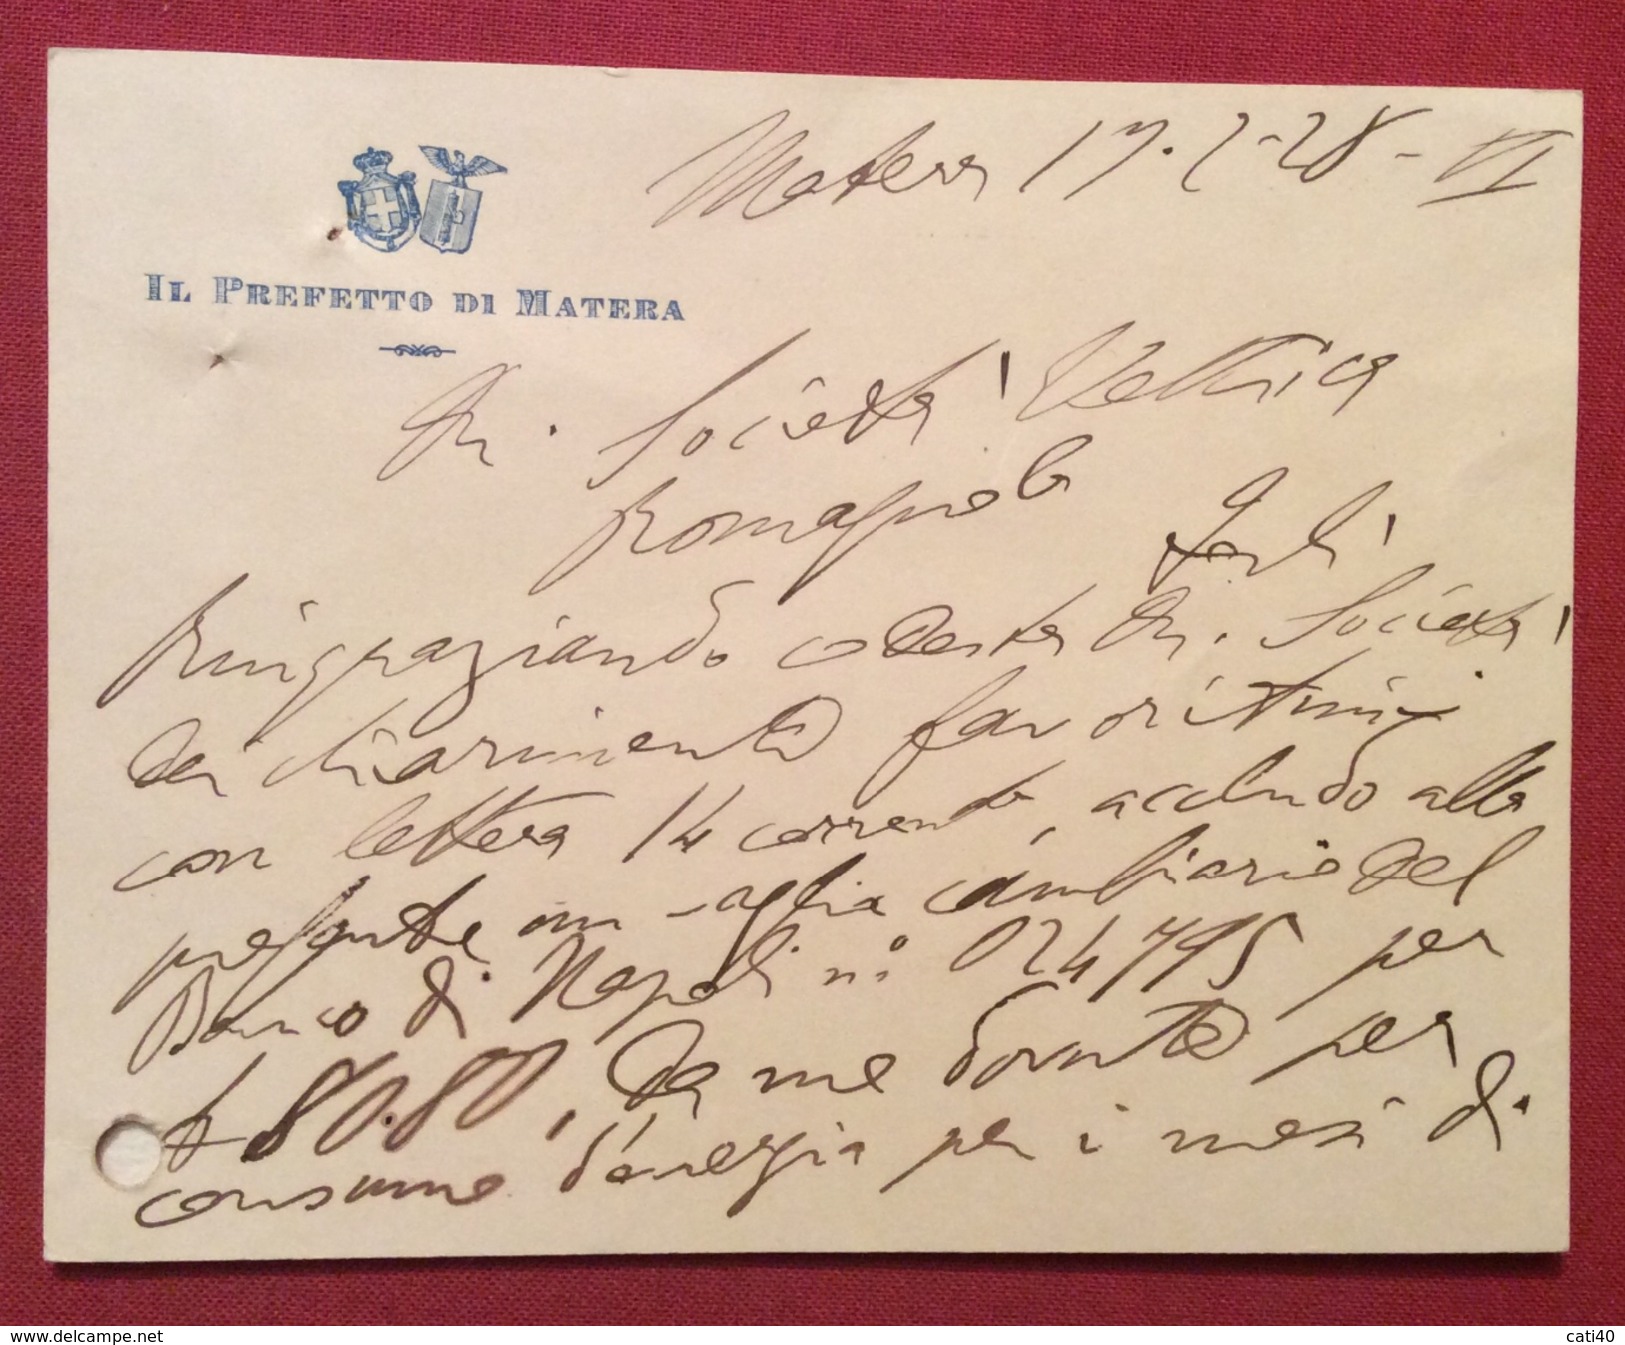 Matera 17.2-28-VI
IL PREFETTO DI MATERA
On. Società Elettrica
Romagnola
Forlì
Ringraziando codesta On. Società
dei chiarimenti favoritimi
con lettera 14 corrente, accludo alla
presente un vaglia cambiario del
Banco di Napoli n° 024795 per
£ 80.80, da me dovute per
consumo d'energia per i mesi di
www.delcampe.net
cati40